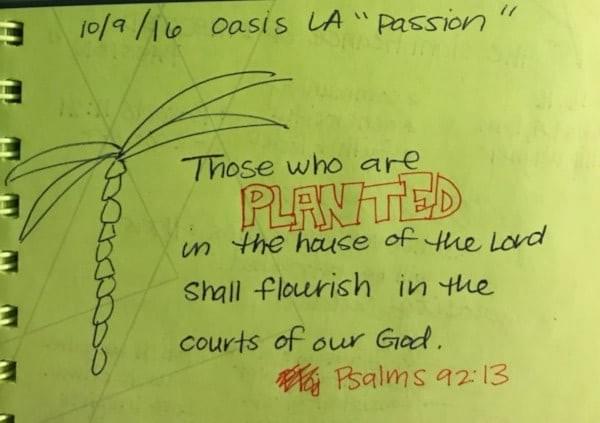 10/9/16 Oasis LA "Passion"
Those who are
PLANTED
in the house of the Lord
shall flourish in the
courts of our God.
Psalms 92:13